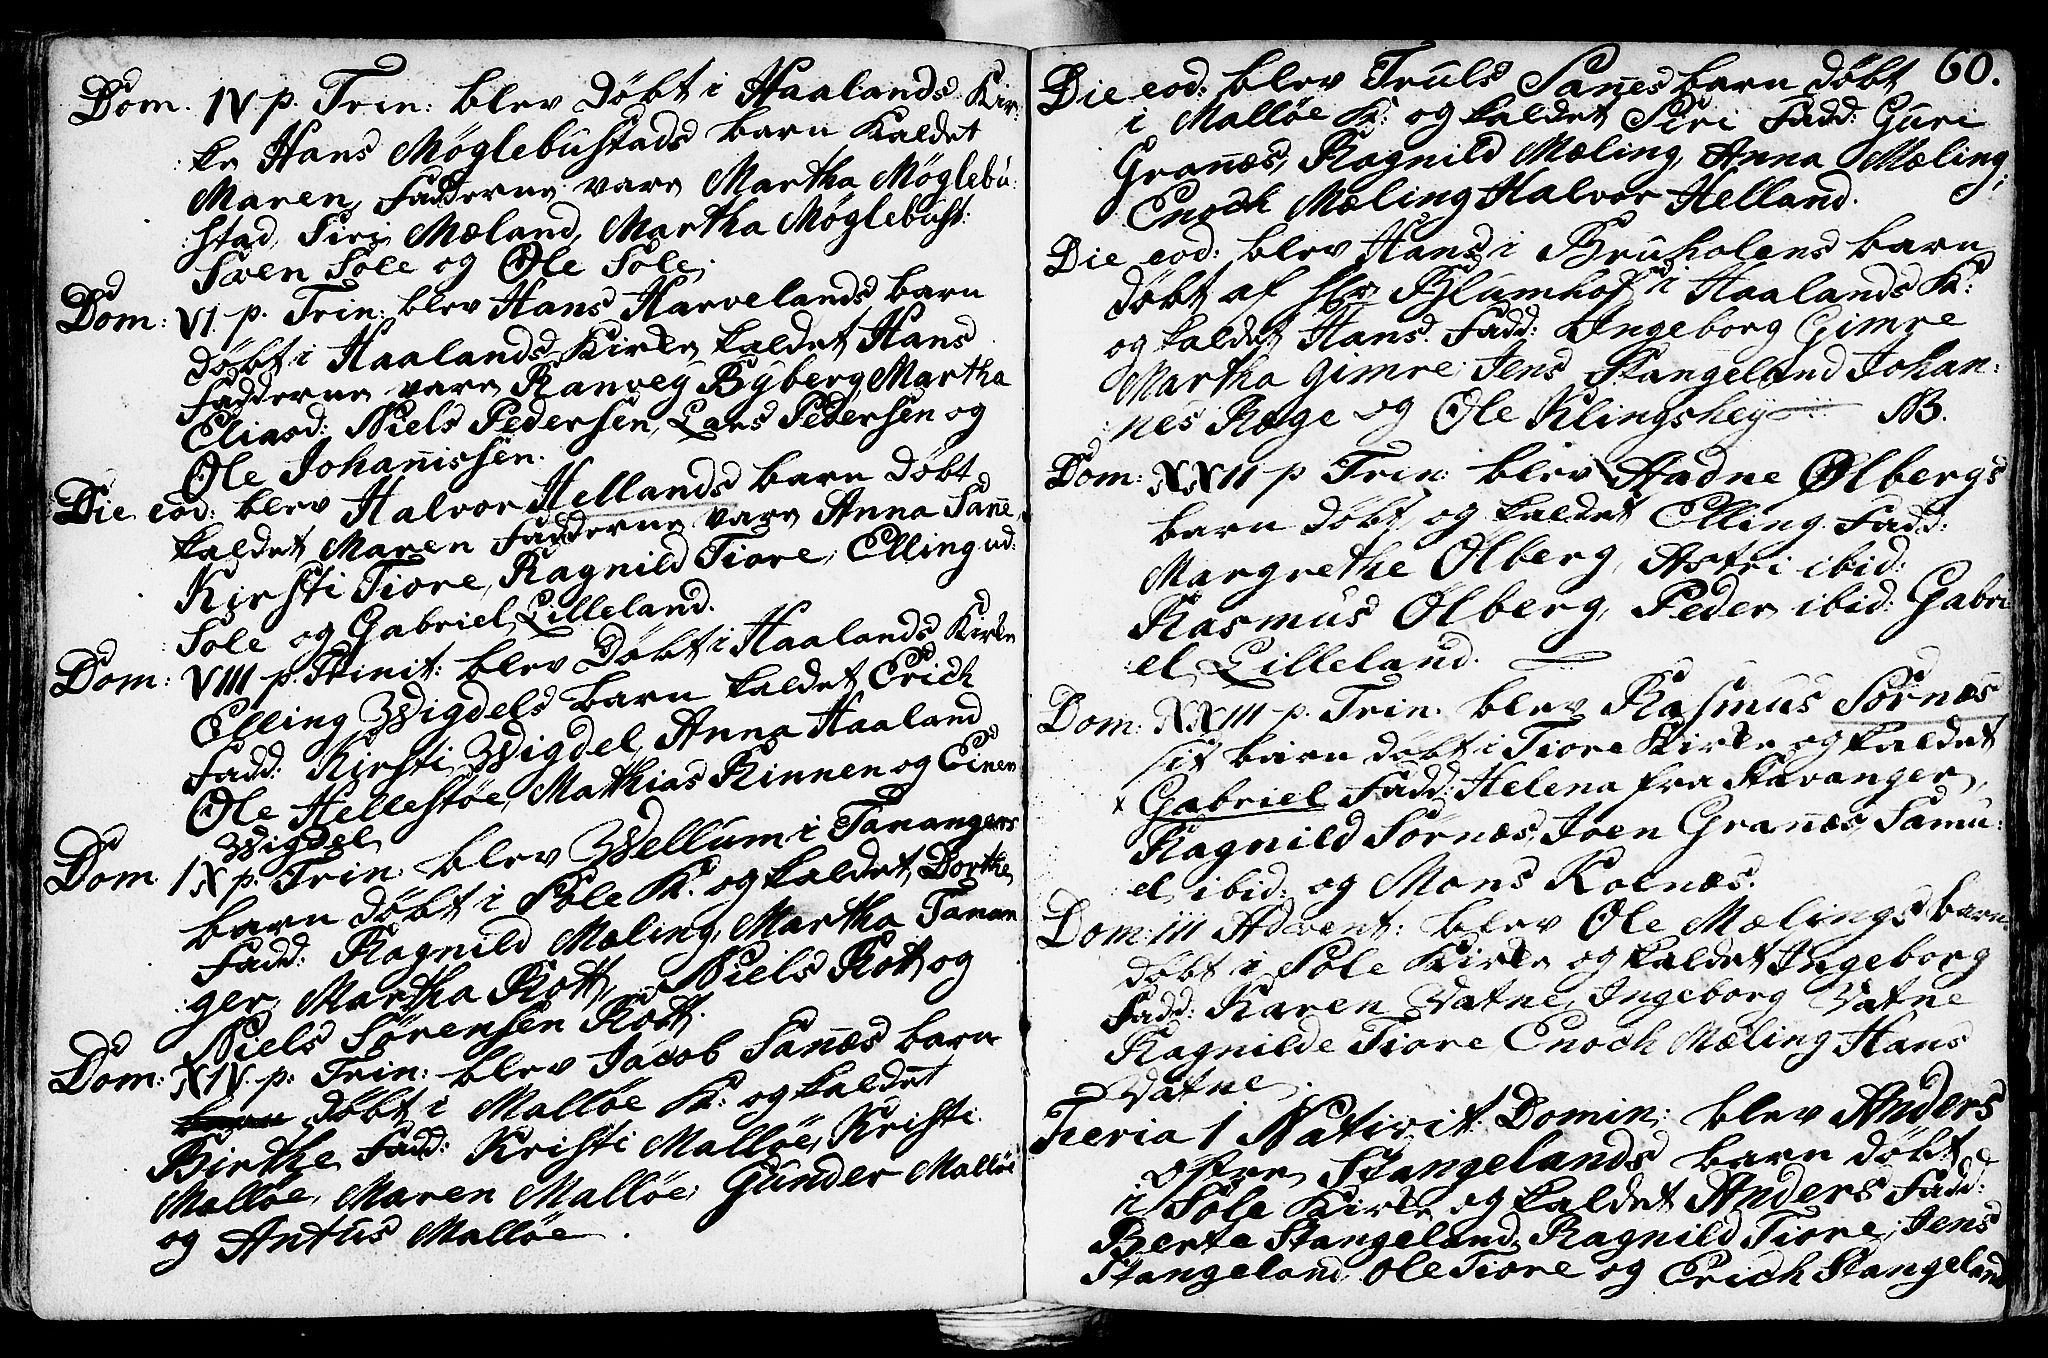 Dom. IV p. Trin: blev Döbt i Haalands Kir:
ke Hans Möglebustads barn kaldet
Maren, Fadderne vare Martha Möglebu:
stad, Siri Mæland, Martha Möglebust:
Sven Sole og Ole Sole.
Dom: VI p. Trin: blev Hans Harvelands barn
döbt i Haalands Kirke kaldet Hans
Fadderne vare Ranveg Byberg, Martha
Eliasd: Niels Pedersen, Lars Pedersen og
Ole Johan̄issen.
Die eod: blev Halvor Hellands barn Döbt
kaldet Maren Fadderne vare Anna San̄e,
Kirsti Tiore, Ragnild Tiore, Elling ud:
Sole og Gabriel Lilleland.
Dom: VIII p. Trinit: blev Döbt i Haalands Kirke
Elling Wigdels barn kaldet Erich
Fadd: Kirsti Wigdel, Anna Haaland,
Ole Hellestöe, Mathias Rinnen og Einer
Wigdel
Dom. IX p. Trin: blev Wellum i Tanangers
barn döbt i Sole K: og kaldet Dorthe,
Fadd: Ragnild Mæling, Martha Tanan
ger, Martha Rott, Niels Rott og
Niels Sörensen Rott.
Dom: XIV. p: Trin: blev Jacob San̄es barn
barn döbt i Mallöe K: og kaldet
Birthe Fadd: Kristi Mallöe, Kristi
Mallöe, Maren Mallöe, Gunder Mallöe
og Antus Mallöe.
60.
Die eod: blev Truls San̄es barn döbt
i Mallöe K: og kaldet Siri Fadd: Guri
Gran̄æs, Ragnild Mæling, Anna Mæling,
Enoch Mæling Halvor Helland.
Die eod: blev Hans i Bruholens barn
döbt af Hr Blumhof i Haalands K:
og kaldet Hans. Fadd: Ingeborg Gimre
Martha Gimre, Jens Stangeland Johan:
nes Ræge og Ole Klingshey NB.
Dom: XXII p Trin: blev Hadne Ölbergs
barn döbt og kaldet Elling. Fadd:
Margrethe Ölberg, Astri ibid:
Rasmus Ölberg, Peder ibid: Gabri
el Lilleland.
Dom: XXIII p. Trin: blev Rasmus Sörnæs
sit barn döbt i Tiore Kirke og kaldet
x Gabriel Fadd: Helena fra Stavanger,
Ragnild Sörnæs, Joen Gran̄æs, Samu:
el ibid: og Mons Kolnæs.
Dom: III Advent: blev Ole Mælings barn
döbt i Sole Kirke og kaldet Ingeborg
Fadd: Karen Vatne, Ingeborg Vatne
Ragnilde Tiore, Enoch Mæling Hans
Vatne.
Feria 1 Nativit: Domin: blev Anders
öfre Stangelands barn döbt
i Sole Kirke og kaldet Anders Fadd:
Berte Stangeland, Ragnild Tiore, Jens
Stangeland, Ole Tiore og Erich Stangeland